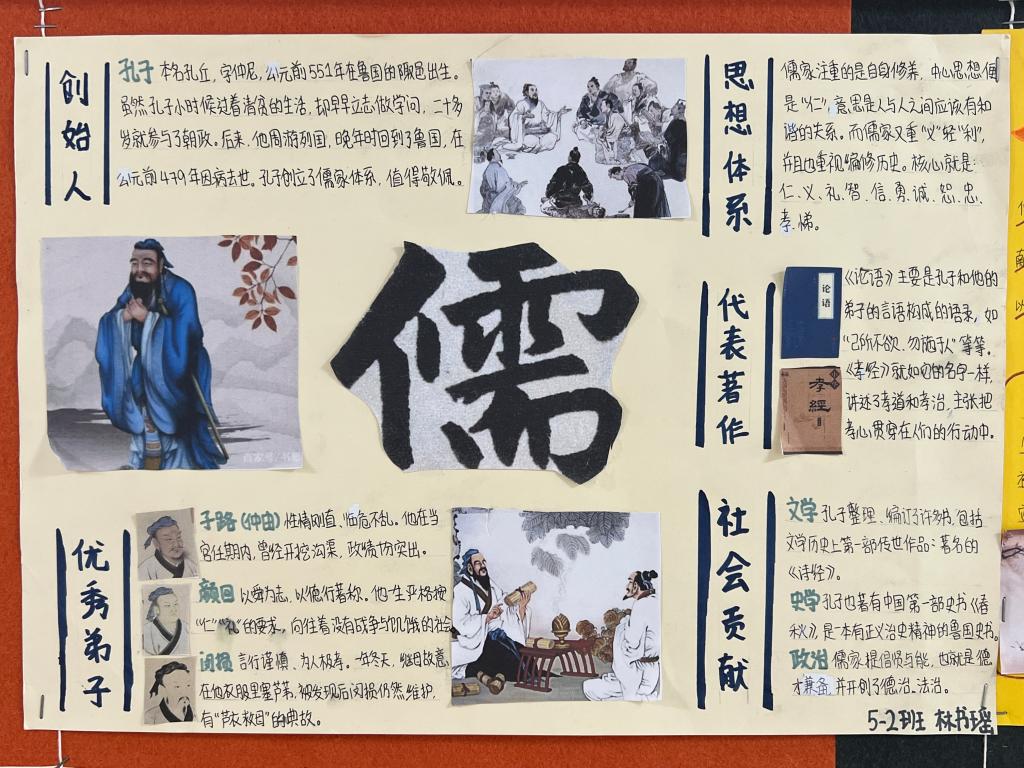 创始人
孔子 本名孔丘，字仲尼，公元前551年在鲁国的陬邑出生。
虽然孔子小时候过着清贫的生活，却早早立志做学问，二十多
岁就参与了朝政。后来，他周游列国，晚年时回到了鲁国，在
公元前479年因病去世。孔子创立了儒家体系，值得敬佩。
思想体系
儒家注重的是自身修养，中心思想便
是“仁”，意思是人与人之间应该有和
谐的关系。而儒家又重“义”轻“利”，
并且也重视编修历史。核心就是：
仁、义、礼、智、信、勇、诚、恕、忠、
孝、悌。
儒
代表著作
论语
孝經
《论语》主要是孔子和他的
弟子的言语构成的语录，如
“己所不欲、勿施于人”等等。
《孝经》就如它的名字一样，
讲述了孝道和孝治，主张把
孝心贯穿在人们的行动中。
优秀弟子
子路(仲由) 性情刚直，临危不乱。他在当
官任期内，曾经开挖沟渠，政绩十分突出。
颜回 以舜为志、以德行著称。他一生严格按
“仁”“礼”的要求，向往着没有战争与饥饿的社会
闵损 言行谨慎，为人极孝。一年冬天，继母故意
在他衣服里塞芦苇，被发现后闵损仍然维护，
有“芦衣救母”的典故。
社会贡献
文学 孔子整理、编订了许多书，包括
文学历史上第一部传世作品：著名的
《诗经》。
史学 孔子也著有中国第一部史书《春
秋》，是一本有正义治史精神的鲁国史书。
政治 儒家提倡贤与能，也就是德
才兼备，并开创了德治、法治。
5-2班 林书瑶